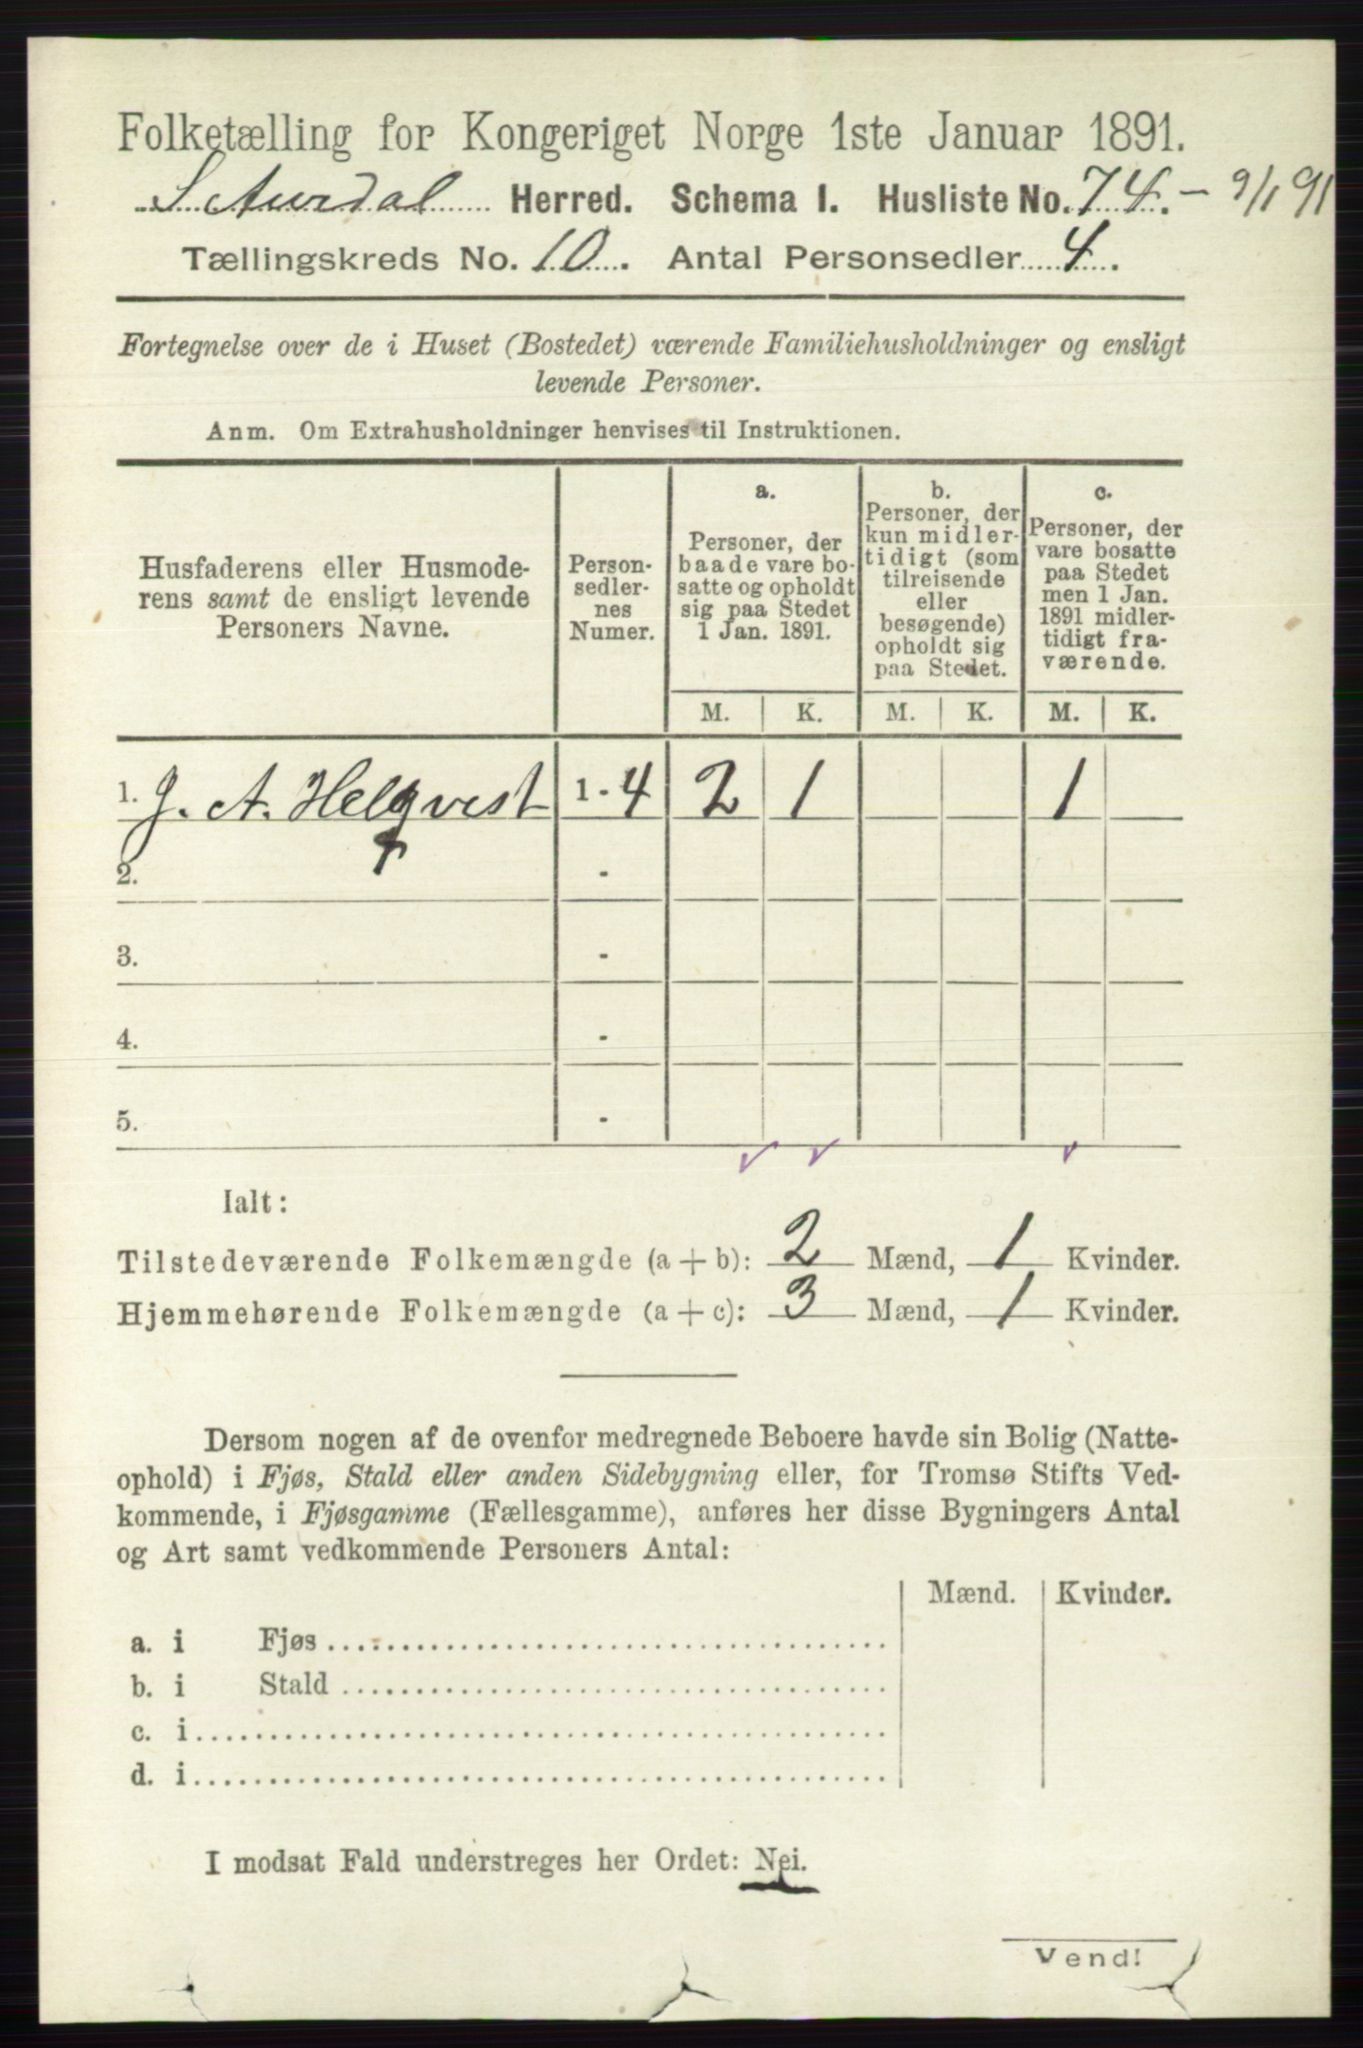 Folketælling for Kongeriget Norge 1ste Januar 1891.
S. Aurdal Herred. Schema I. Husliste No. 74. - 9/1 91
Tællingskreds No. 10. Antal Personsedler 4.
Fortegnelse over de i Huset (Bostedet) værende Familiehusholdninger og ensligt
levende Personer.
Anm. Om Extrahusholdninger henvises til Instruktionen.
Husfaderens eller Husmode-
rens samt de ensligt levende
Personers Navne.
Person-
sedler-
nes
Numer.
a.
Personer, der
baade vare bo-
satte og opholdt
sig paa Stedet
1 Jan. 1891.
b.
Personer, der
kun midler-
tidigt (som
tilreisende
eller
besøgende)
opholdt sig
paa Stedet.
c.
Personer, der
vare bosatte
paa Stedet
men 1 Jan.
1891 midler-
tidigt fra-
værende.
M. K. M. K. M. K.
1. J. A. Helqvist 1 - 4 2 1 1
2. -
3. -
4. -
5. -
Ialt:
Tilstedeværende Folkemængde (a + b): 2 Mænd, 1 Kvinder.
Hjemmehørende Folkemængde (a + c): 3 Mænd, 1 Kvinder.
Dersom nogen af de ovenfor medregnede Beboere havde sin Bolig (Natte-
ophold) i Fjøs, Stald eller anden Sidebygning eller, for Tromsø Stifts Ved-
kommende, i Fjøsgamme (Fællesgamme), anføres her disse Bygningers Antal
og Art samt vedkommende Personers Antal:
Mænd. Kvinder.
a. i Fjøs
b. i Stald
c. i
d. i
I modsat Fald understreges her Ordet: Nei.
Vend!